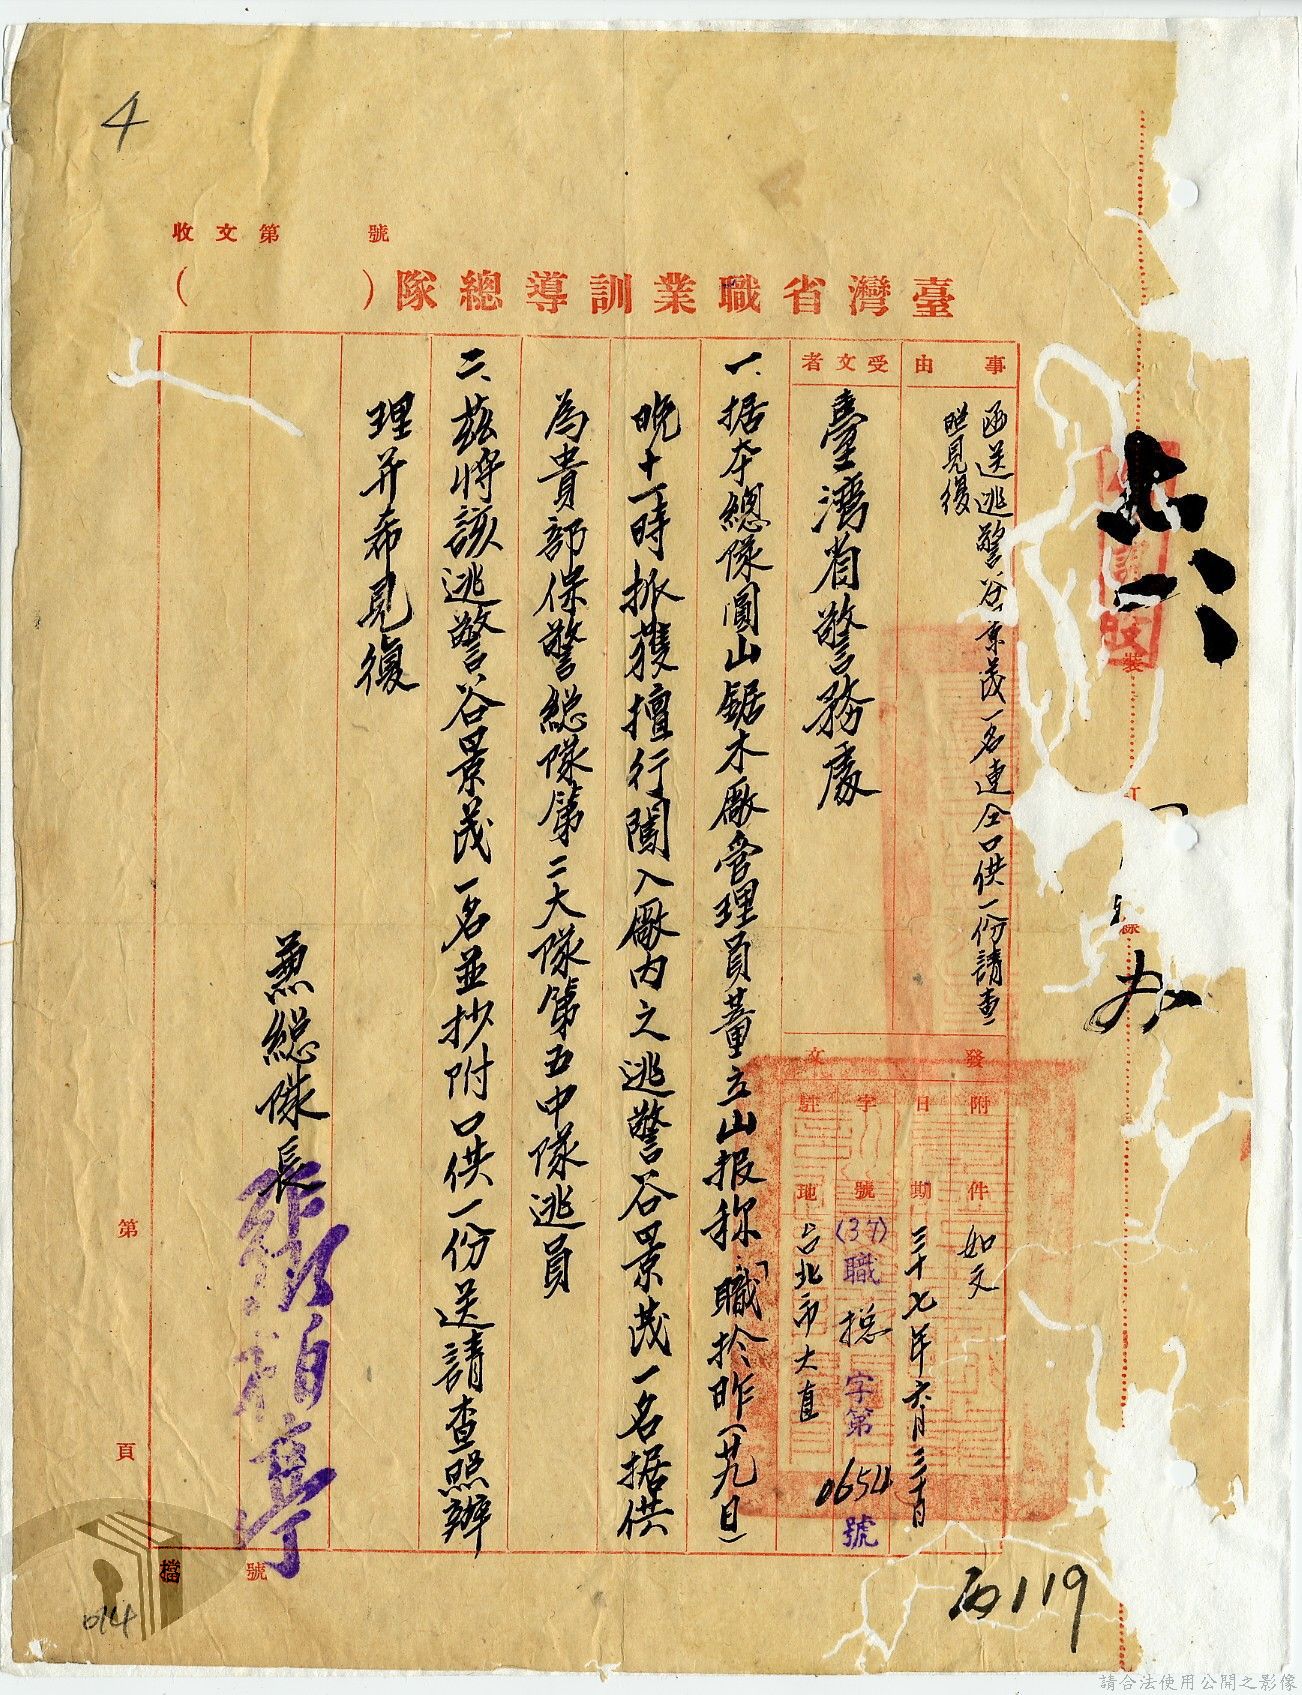 4
收文第　　號
臺灣省職業訓導總隊（　　）
事由
函送逃警谷景茂一名連仝口供一份請查
照見復
受文者
臺灣省警務處
發文
附件
如文
日期
三十七年六月三十日
字號
(37)職總字第0654號
駐地
台北市大直
一、据本總隊圓山鋸木廠管理員董立山报称「職於昨(廿九日)
晚十一時抓獲擅行闖入廠內之逃警谷景茂一名据供
為貴部保警総隊第二大隊第五中隊逃員
二、茲將該逃警谷景茂一名並抄附口供一份送請查照辦
理并希見復
兼総隊長
張柏亭
第　頁
檔　號
裝
訂
線
六
办
丙119
014
請合法使用公開之影像